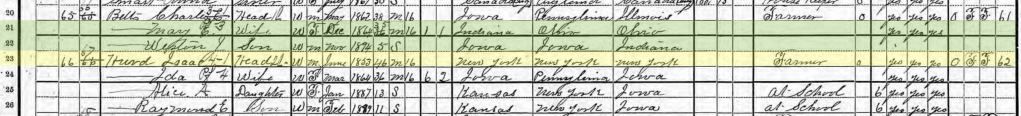 20 65 Belts Charles Head W m May 1862 38 m 16 Iowa Pennsylvania Illinois Farmer 0 yes yes yes O F F 61
21 — Mary E Wife W F Dec 1864 35 m 16 1 1 Indiana Ohio Ohio yes yes yes
22 — Weston J Son W m Nov 1894 5 S Iowa Iowa Indiana
23 66 Hurd Isaac Head W m June 1853 46 m 16 New York New York New York Farmer 0 yes yes yes O F F 62
24 — Ida Wife W F Mar 1864 36 m 16 6 2 Iowa Pennsylvina Iowa yes yes yes
25 — Alice A Daughter W F Jan 1887 13 S Kansas New York Iowa at School 6 yes yes yes
26 — Raymond E Son W m Feb 1889 11 S Kansas New York Iowa at School 6 yes yes yes